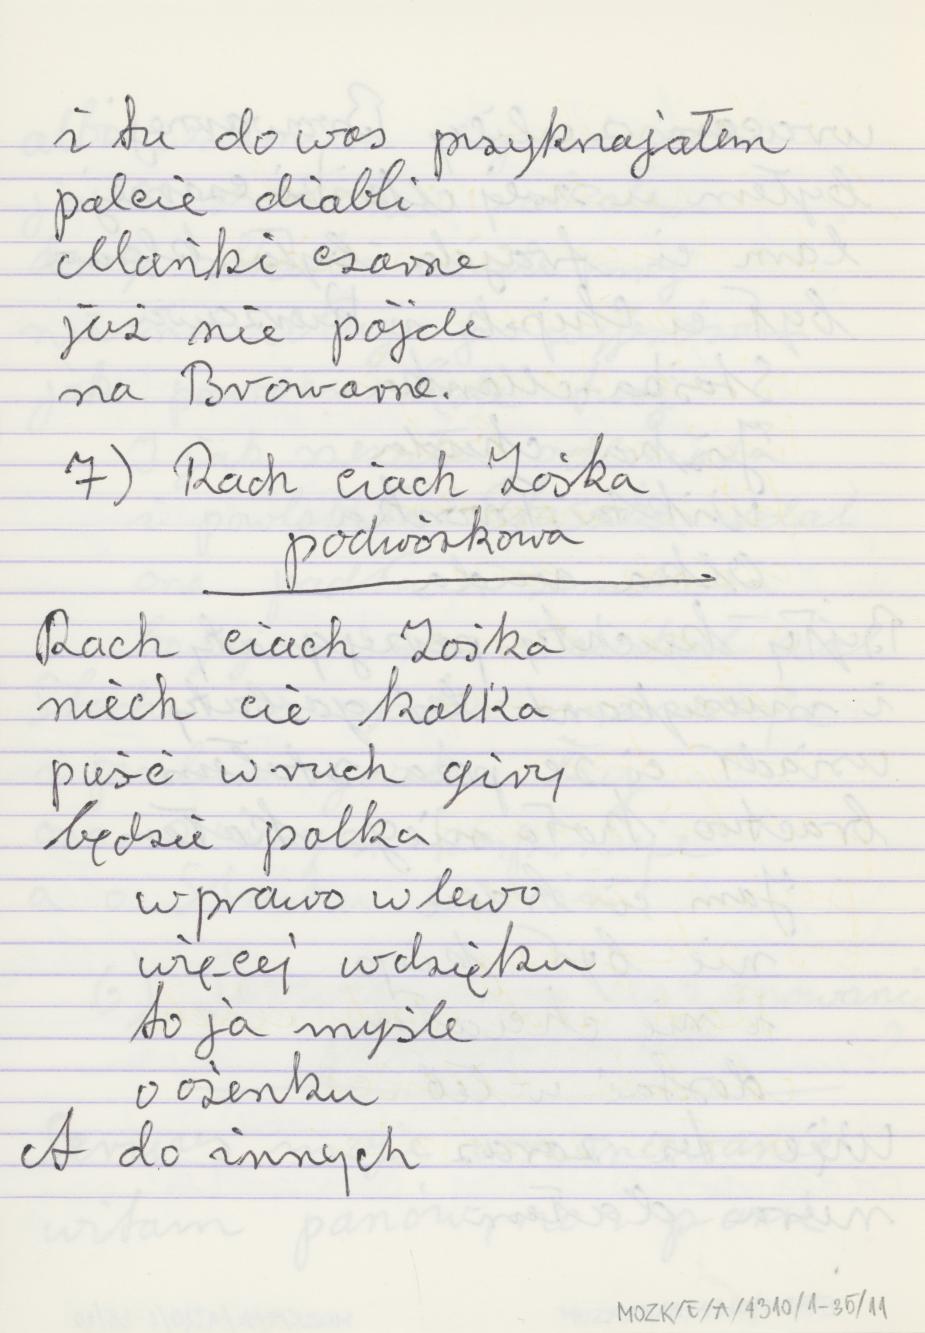 i tu do was przyknajałem
palcie diabli
Mańki czarne
już nie pójde
na Browarne.
7) Rach ciach Zośka
podwórkowa
Rach ciach Zośka
niech cie kolka
puść w ruch giry
będzie polka
w prawo w lewo
więcej wdzięku
to ja myśle
o ożenku
A do innych
MOZK/E/A/4310/1-35/11